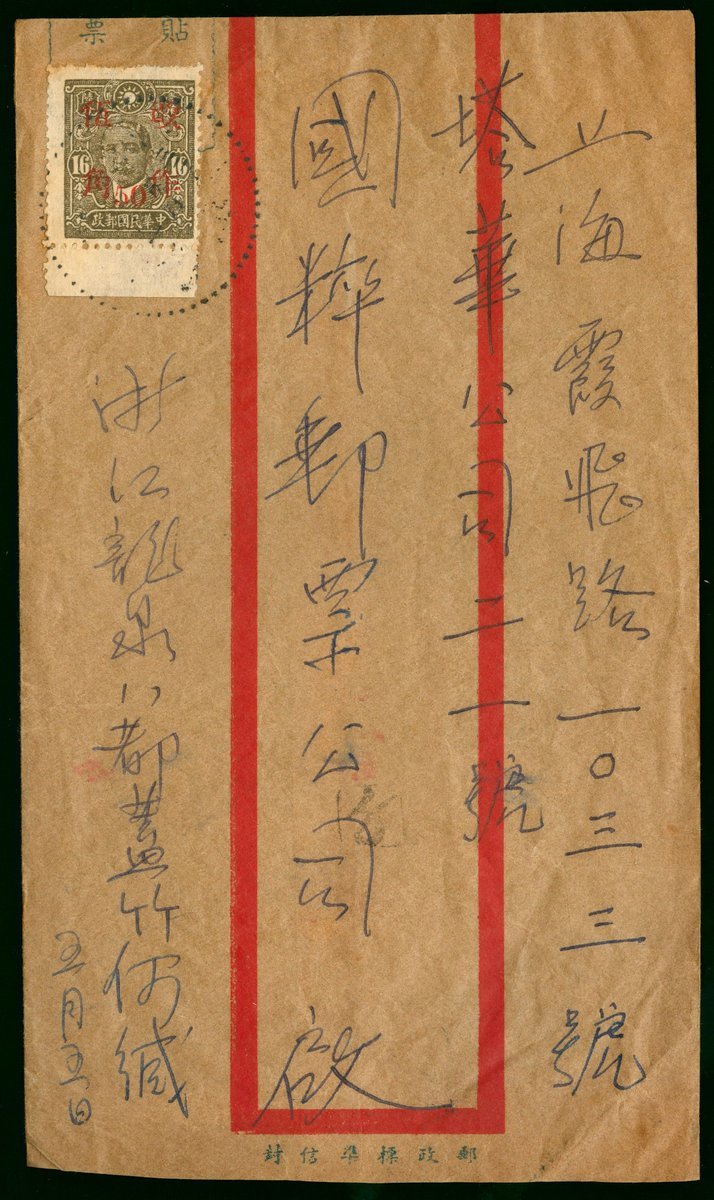 貼票
16
16
50
角
中華民國郵政
上海霞飛路一〇三三號
塔華公司二一號
國粹郵票公司 啟
浙江龍泉八都蓋竹何緘
五月五日
郵政標準信封